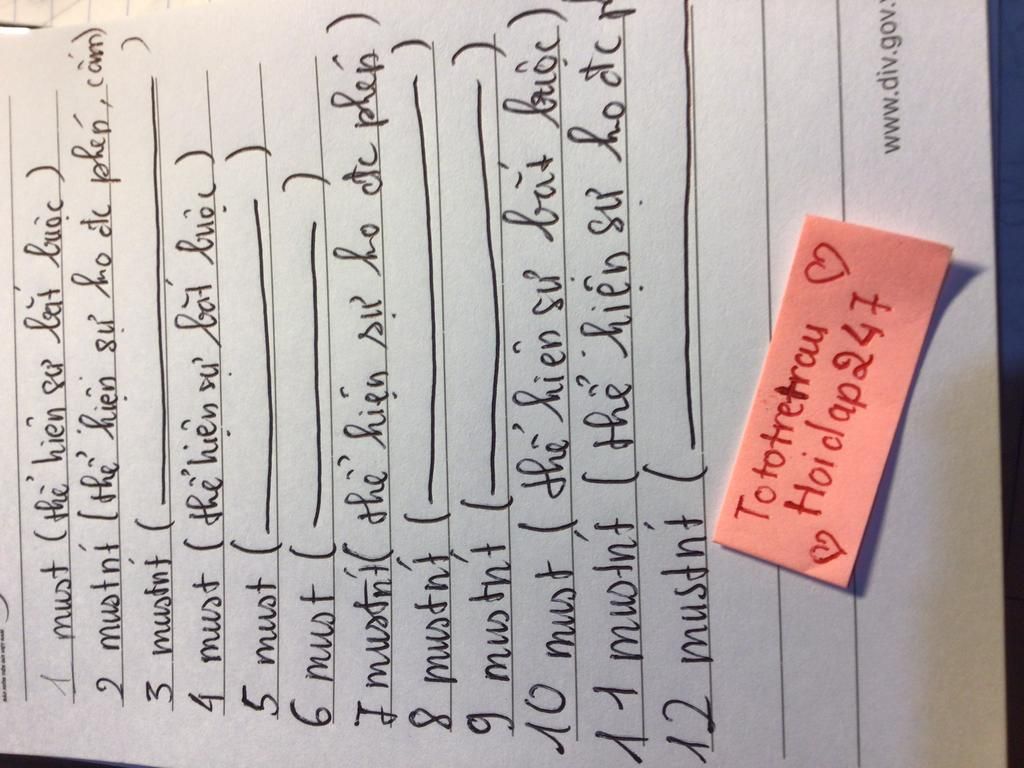 1 must (thể hiện sự bắt buộc)
2 mustn't (thể hiện sự ko đc phép, cấm)
3 mustn't ( )
4 must (thể hiện sự bắt buộc)
5 must ( )
6 must ( )
7 mustn't (thể hiện sự ko đc phép)
8 mustn't ( )
9 mustn't ( )
10 must (thể hiện sự bắt buộc)
11 mustn't (thể hiện sự ko đc
12 mustn't (
www.div.gov.
Totoretrau
Hoidap247